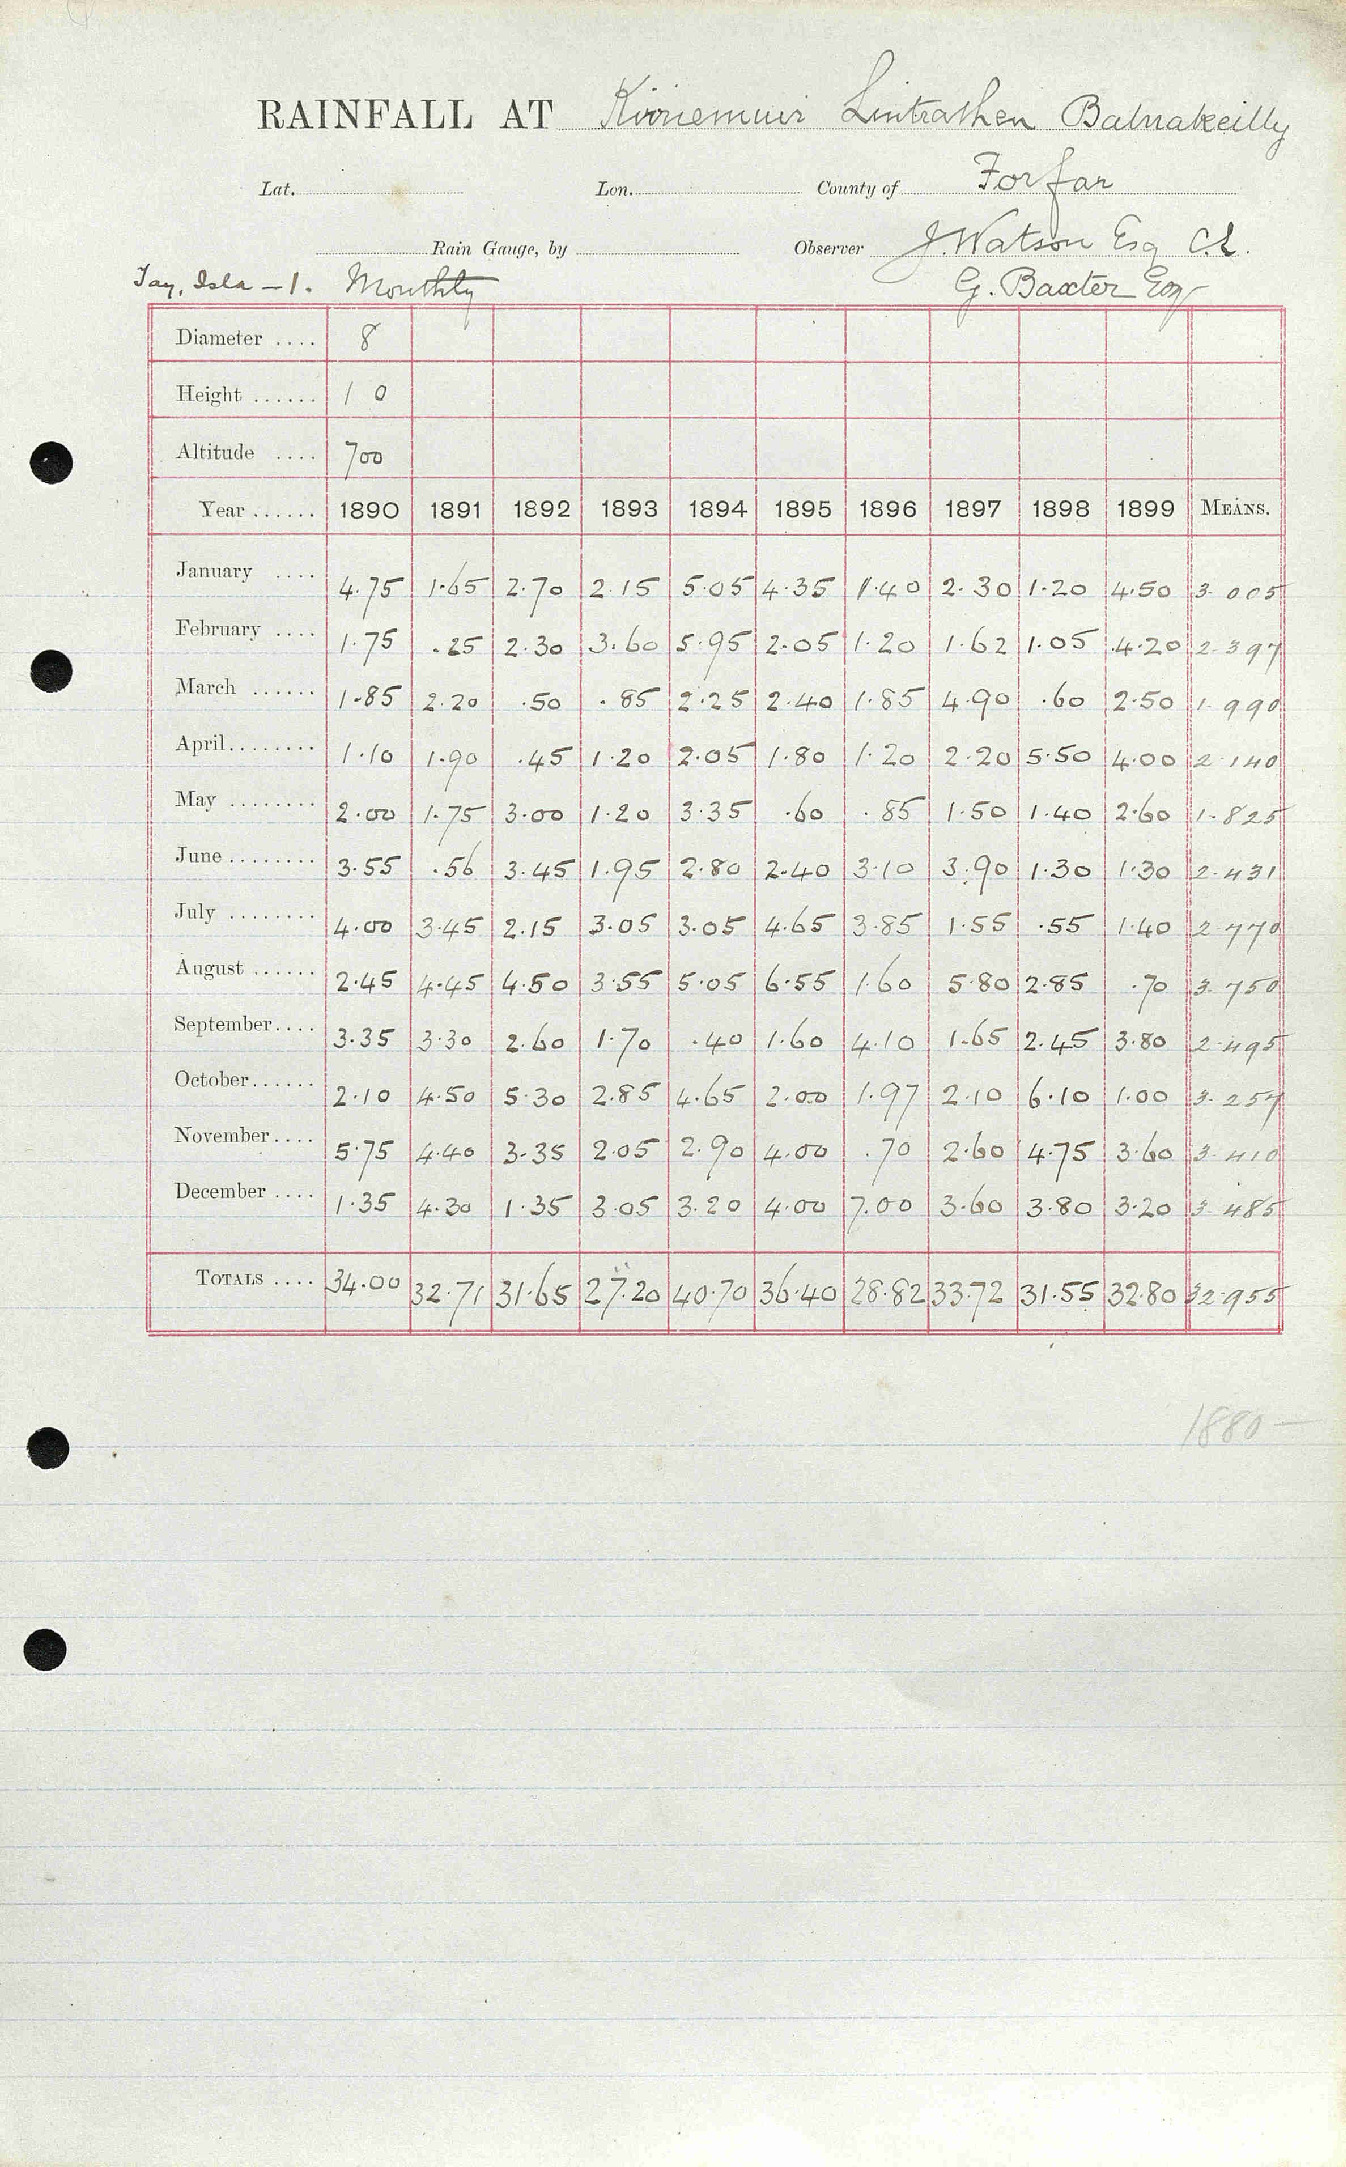 RAINFALL AT Kirriemuir Lintrathen Balnakeilly
Lat. Lon. County of Forfar
Rain Gauge, by Observer J. Watson Esq C.E.
Tay, Isla - 1. Monthly G. Baxter Esq
Diameter .... 8
Height ...... 1 0
Altitude .... 700
Year ...... 1890 1891 1892 1893 1894 1895 1896 1897 1898 1899 MEANS.
January .... 4.75 1.65 2.70 2.15 5.05 4.35 1.40 2.30 1.20 4.50 3.005
February .... 1.75 .25 2.30 3.60 5.95 2.05 1.20 1.62 1.05 4.20 2.397
March ...... 1.85 2.20 .50 .85 2.25 2.40 1.85 4.90 .60 2.50 1.990
April........ 1.10 1.90 .45 1.20 2.05 1.80 1.20 2.20 5.50 4.00 2.140
May ........ 2.00 1.75 3.00 1.20 3.35 .60 .85 1.50 1.40 2.60 1.825
June ........ 3.55 .56 3.45 1.95 2.80 2.40 3.10 3.90 1.30 1.30 2.431
July ........ 4.00 3.45 2.15 3.05 3.05 4.65 3.85 1.55 .55 1.40 2.770
August ...... 2.45 4.45 4.50 3.55 5.05 6.55 1.60 5.80 2.85 .70 3.750
September.... 3.35 3.30 2.60 1.70 .40 1.60 4.10 1.65 2.45 3.80 2.495
October...... 2.10 4.50 5.30 2.85 4.65 2.00 1.97 2.10 6.10 1.00 3.257
November.... 5.75 4.40 3.35 2.05 2.90 4.00 .70 2.60 4.75 3.60 3.410
December .... 1.35 4.30 1.35 3.05 3.20 4.00 7.00 3.60 3.80 3.20 3.485
TOTALS .... 34.00 32.71 31.65 27.20 40.70 36.40 28.82 33.72 31.55 32.80 32.955
1880 —